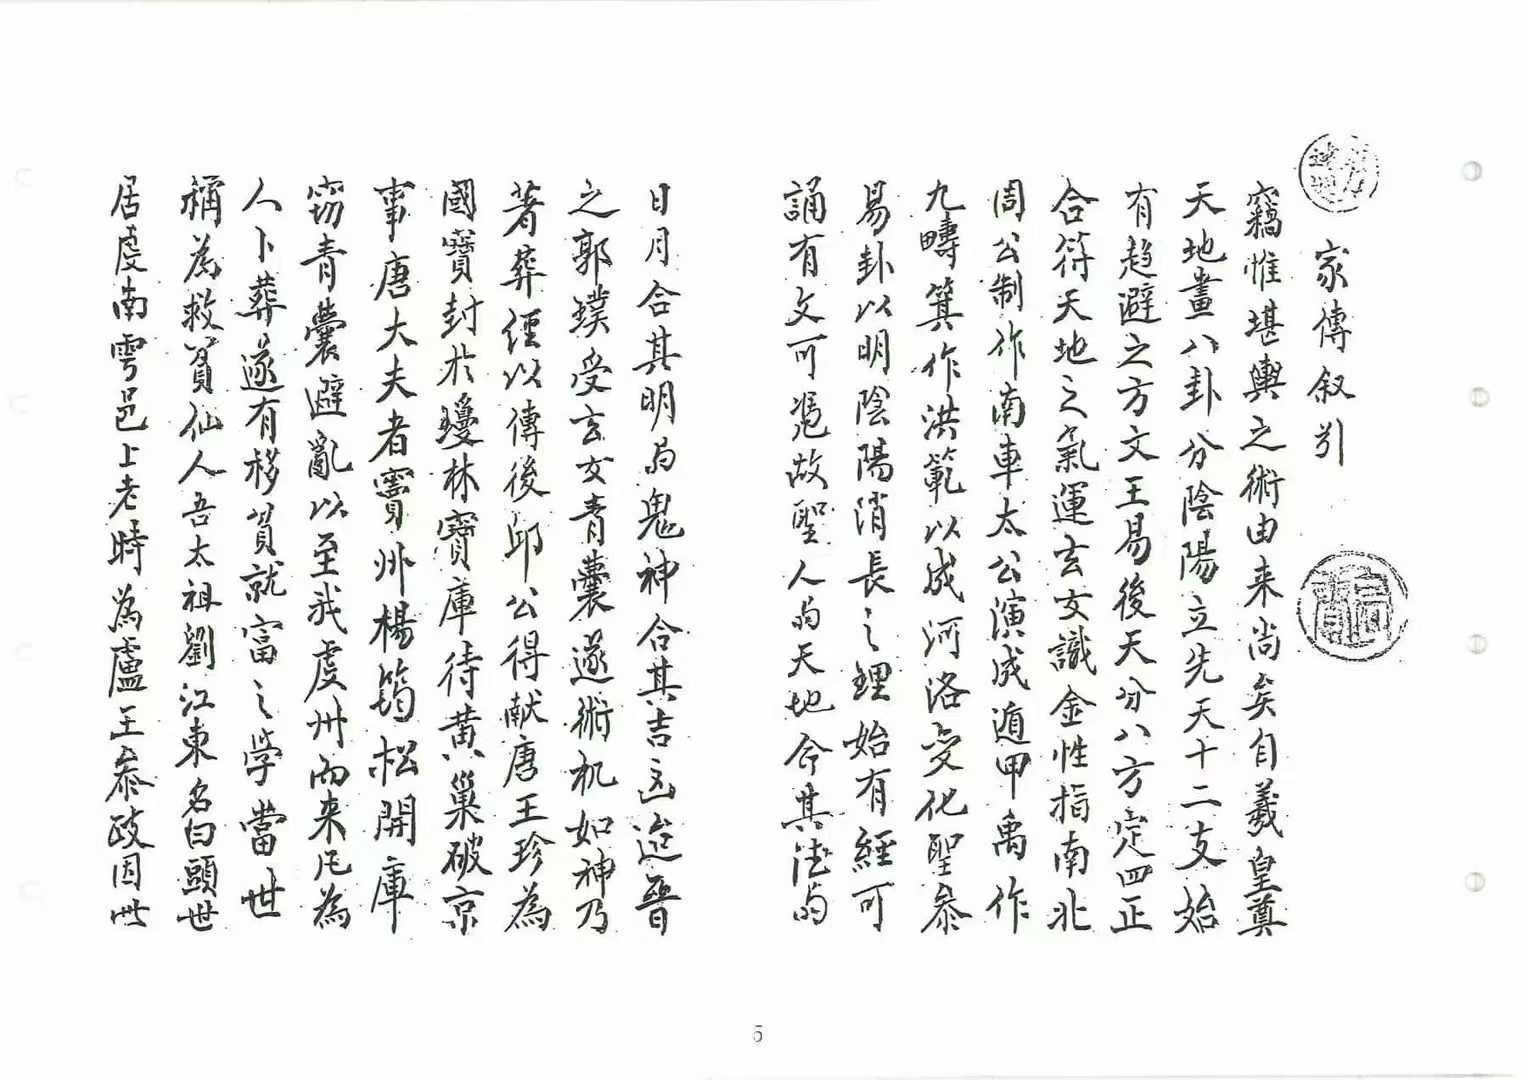 家傳叙引
竊惟堪輿之術由来尚矣自羲皇奠
天地畫八卦分陰陽立先天十二支始
有趋避之方文王易後天分八方定四正
合符天地之氣運玄女識金性指南北
周公制作南車太公演成遁甲禹作
九疇箕作洪範以成河洛变化聖叅
易卦以明陰陽消長之理始有經可
誦有文可凭故聖人与天地合其德与
日月合其明与鬼神合其吉凶迨晉
之郭璞受玄女青囊遂術机如神乃
著葬经以傳後邱公得献唐王珍為
國寶封於瓊林寶庫待黄巢破京
事唐大夫者竇州楊筠松開庫
窃青囊避亂以至我虔州而来凡為
人卜葬遂有移貧就富之学當世
稱為救貧仙人吾太祖劉江東名白頭世
居虔南雩邑上老時為盧王叅政因世
5